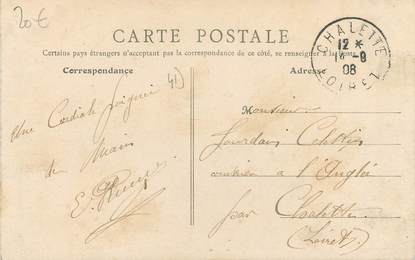 20€
CARTE POSTALE
Certains pays étrangers n'acceptant pas la correspondance de ce côté, se renseigner à la
Correspondance
Adresse
CHALETTE
12 *
08
LOIRET
41
Une Cordiale poignée
de Main
Monsieur
Jourdain
à l'Anglée
par
Chalette
(Loiret)